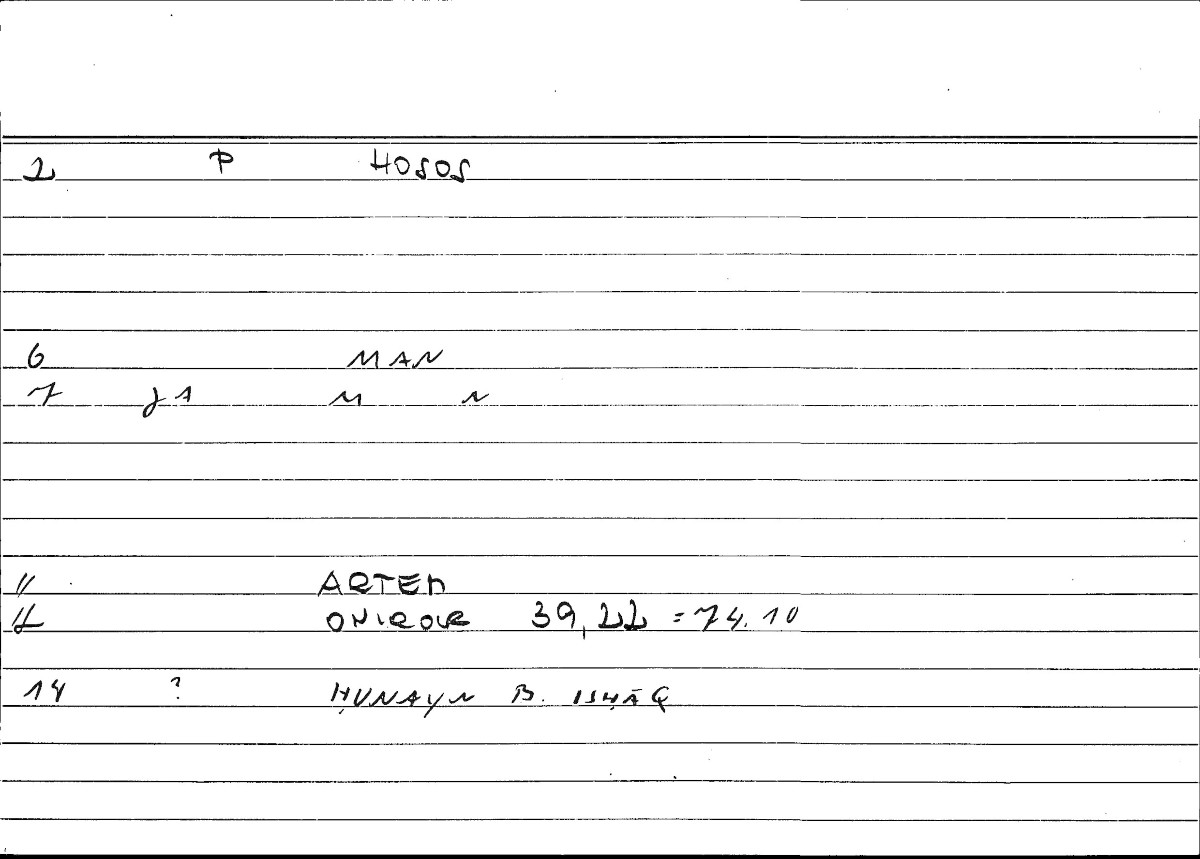 2 P HOSOS
6 MAN
7 J1 M N
11 ARTEM
12 ONIROCR 39,22 = 74.10
14 ? ḤUNAYN B. ISḤĀQ